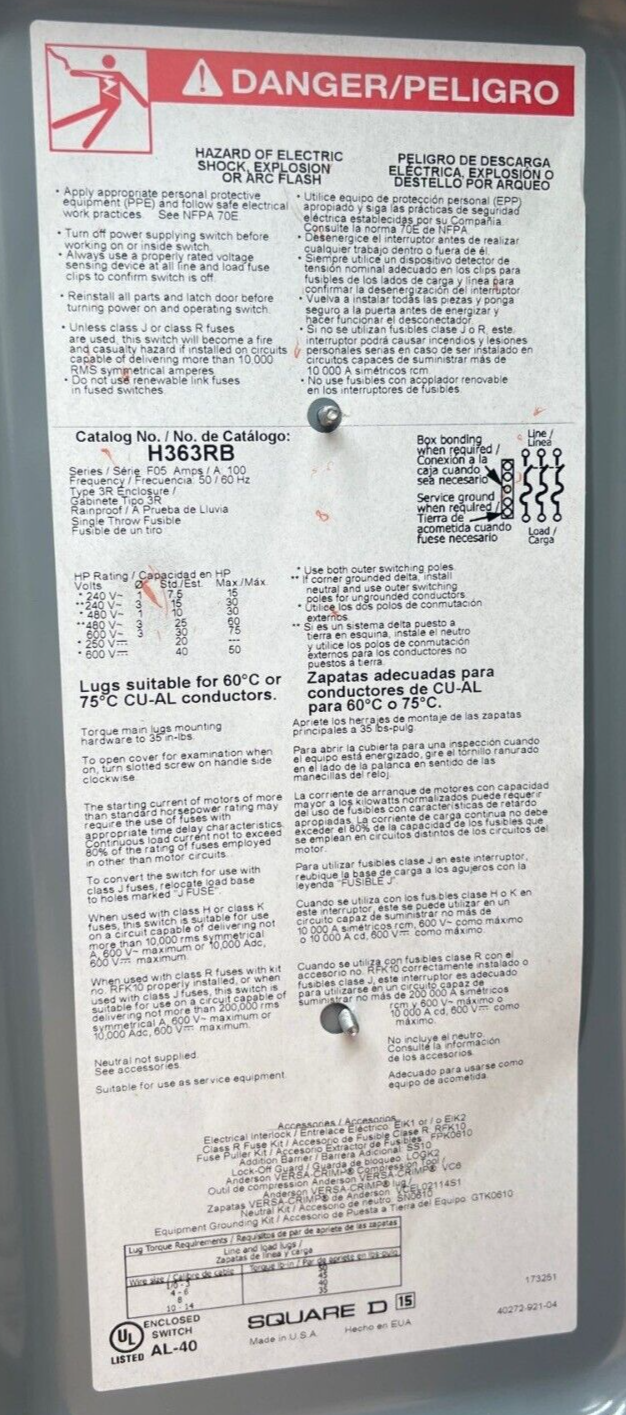 DANGER/PELIGRO
HAZARD OF ELECTRIC
SHOCK, EXPLOSION
OR ARC FLASH
• Apply appropriate personal protective
equipment (PPE) and follow safe electrical
work practices. See NFPA 70E
• Turn off power supplying switch before
working on or inside switch.
• Always use a properly rated voltage
sensing device at all line and load fuse
clips to confirm switch is off.
• Reinstall all parts and latch door before
turning power on and operating switch.
• Unless class J or class R fuses
are used, this switch will become a fire
and casualty hazard if installed on circuits
capable of delivering more than 10,000
RMS symmetrical amperes.
• Do not use renewable link fuses
in fused switches.
PELIGRO DE DESCARGA
ELÉCTRICA, EXPLOSIÓN O
DESTELLO POR ARQUEO
• Utilice equipo de protección personal (EPP)
apropiado y siga las prácticas de seguridad
eléctrica establecidas por su Compañía.
Consulte la norma 70E de NFPA.
• Desenergice el interruptor antes de realizar
cualquier trabajo dentro o fuera de él.
• Siempre utilice un dispositivo detector de
tensión nominal adecuado en los clips para
fusibles de los lados de carga y línea para
confirmar la desenergización del interruptor.
• Vuelva a instalar todas las piezas y ponga
seguro a la puerta antes de energizar y
hacer funcionar el desconectador.
• Si no se utilizan fusibles clase J o R, este
interruptor podrá causar incendios y lesiones
personales serias en caso de ser instalado en
circuitos capaces de suministrar más de
10 000 A simétricos rcm.
• No use fusibles con acoplador renovable
en los interruptores de fusibles.
Catalog No. / No. de Catálogo:
H363RB
Series / Série F05 Amps / A 100
Frequency / Frecuencia 50 / 60 Hz
Type 3R Enclosure /
Gabinete Tipo 3R
Rainproof / A Prueba de Lluvia
Single Throw Fusible
Fusible de un tiro
Box bonding
when required /
Conexión a la
caja cuando
sea necesario
Service ground
when required /
Tierra de
acometida cuando
fuese necesario
Line /
Línea
Load /
Carga
HP Rating / Capacidad en HP
Volts Ø Std./Est. Max./Máx.
* 240 V~ 1 7.5 15
**240 V~ 3 15 30
* 480 V~ 1 10 30
**480 V~ 3 25 60
600 V~ 3 30 75
* 250 V⎓ 20 ---
* 600 V⎓ 40 50
* Use both outer switching poles.
** If corner grounded delta, install
neutral and use outer switching
poles for ungrounded conductors.
* Utilice los dos polos de conmutación
externos.
** Si es un sistema delta puesto a
tierra en esquina, instale el neutro
y utilice los polos de conmutación
externos para los conductores no
puestos a tierra.
Lugs suitable for 60°C or
75°C CU-AL conductors.
Zapatas adecuadas para
conductores de CU-AL
para 60°C o 75°C.
Torque main lugs mounting
hardware to 35 in-lbs.
To open cover for examination when
on, turn slotted screw on handle side
clockwise.
The starting current of motors of more
than standard horsepower rating may
require the use of fuses with
appropriate time delay characteristics.
Continuous load current not to exceed
80% of the rating of fuses employed
in other than motor circuits.
To convert the switch for use with
class J fuses, relocate load base
to holes marked "J FUSE".
When used with class H or class K
fuses, this switch is suitable for use
on a circuit capable of delivering not
more than 10,000 rms symmetrical
A, 600 V~ maximum or 10,000 Adc,
600 V⎓ maximum.
When used with class R fuses with kit
no. RFK10 properly installed, or when
used with class J fuses, this switch is
suitable for use on a circuit capable of
delivering not more than 200,000 rms
symmetrical A, 600 V~ maximum or
10,000 Adc, 600 V⎓ maximum.
Neutral not supplied.
See accessories.
Suitable for use as service equipment.
Apriete los herrajes de montaje de las zapatas
principales a 35 lbs-pulg.
Para abrir la cubierta para una inspección cuando
el equipo está energizado, gire el tornillo ranurado
en el lado de la palanca en sentido de las
manecillas del reloj.
La corriente de arranque de motores con capacidad
mayor a los kilowatts normalizados puede requerir
del uso de fusibles con características de retardo
apropiadas. La corriente de carga continua no debe
exceder el 80% de la capacidad de los fusibles que
se emplean en circuitos distintos de los circuitos del
motor.
Para utilizar fusibles clase J en este interruptor,
reubique la base de carga a los agujeros con la
leyenda "FUSIBLE J".
Cuando se utiliza con los fusibles clase H o K en
este interruptor, éste se puede utilizar en un
circuito capaz de suministrar no más de
10 000 A simétricos rcm, 600 V~ como máximo
o 10 000 A cd, 600 V⎓ como máximo.
Cuando se utiliza con fusibles clase R con el
accesorio no. RFK10 correctamente instalado o
fusibles clase J, este interruptor es adecuado
para utilizarse en un circuito capaz de
suministrar no más de 200 000 A simétricos
rcm y 600 V~ máximo o
10 000 A cd, 600 V⎓ como
máximo.
No incluye el neutro.
Consulte la información
de los accesorios.
Adecuado para usarse como
equipo de acometida.
Accessories / Accesorios
Electrical Interlock / Entrelace Eléctrico EIK1 or / o EIK2
Class R Fuse Kit / Accesorio de Fusible Clase R RFK10
Fuse Puller Kit / Accesorio Extractor de Fusibles FPK0610
Addition Barrier / Barrera Adicional SS10
Lock-Off Guard / Guarda de bloqueo LOGK2
Anderson VERSA-CRIMP® Compression Tool /
Outil de compression Anderson VERSA-CRIMP® VC6
Anderson VERSA-CRIMP® lug /
Zapatas VERSA-CRIMP® de Anderson VCEL02114S1
Neutral Kit / Accesorio de neutro SN0610
Equipment Grounding Kit / Accesorio de Puesta a Tierra del Equipo GTK0610
Lug Torque Requirements / Requisitos de par de apriete de las zapatas
Line and load lugs /
Zapatas de línea y carga
Wire size / Calibre de cable Torque lb-in / Par de apriete en lbs-pulg
1/0 - 3 50
4 - 6 45
8 40
10 - 14 35
UL
LISTED
ENCLOSED
SWITCH
AL-40
SQUARE D 15
Made in U.S.A. Hecho en EUA
173251
40272-921-04